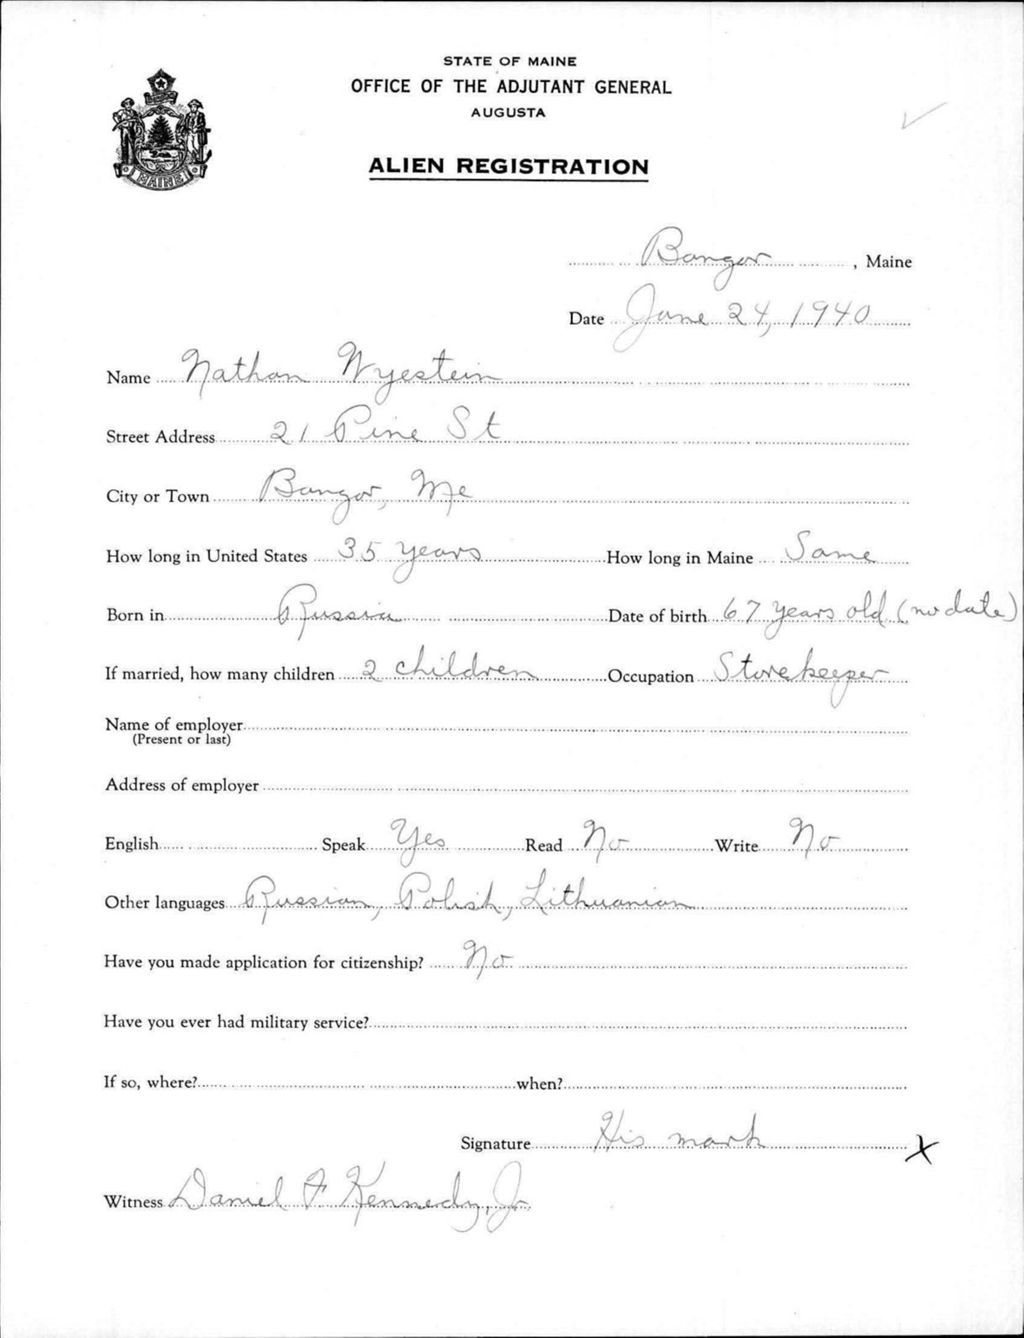 STATE OF MAINE
OFFICE OF THE ADJUTANT GENERAL
AUGUSTA
ALIEN REGISTRATION
MAINE
Bangor, Maine
Date June 24, 1940
Name Nathan Wyestein
Street Address 21 Pine St
City or Town Bangor, Me
How long in United States 35 years How long in Maine Same
Born in Russia Date of birth 67 years old (no date)
If married, how many children 2 children Occupation Storekeeper
Name of employer
(Present or last)
Address of employer
English Speak Yes Read No Write No
Other languages Russian, Polish, Lithuanian
Have you made application for citizenship? No
Have you ever had military service?
If so, where? when?
Signature His mark X
Witness Daniel F Kennedy, Jr.